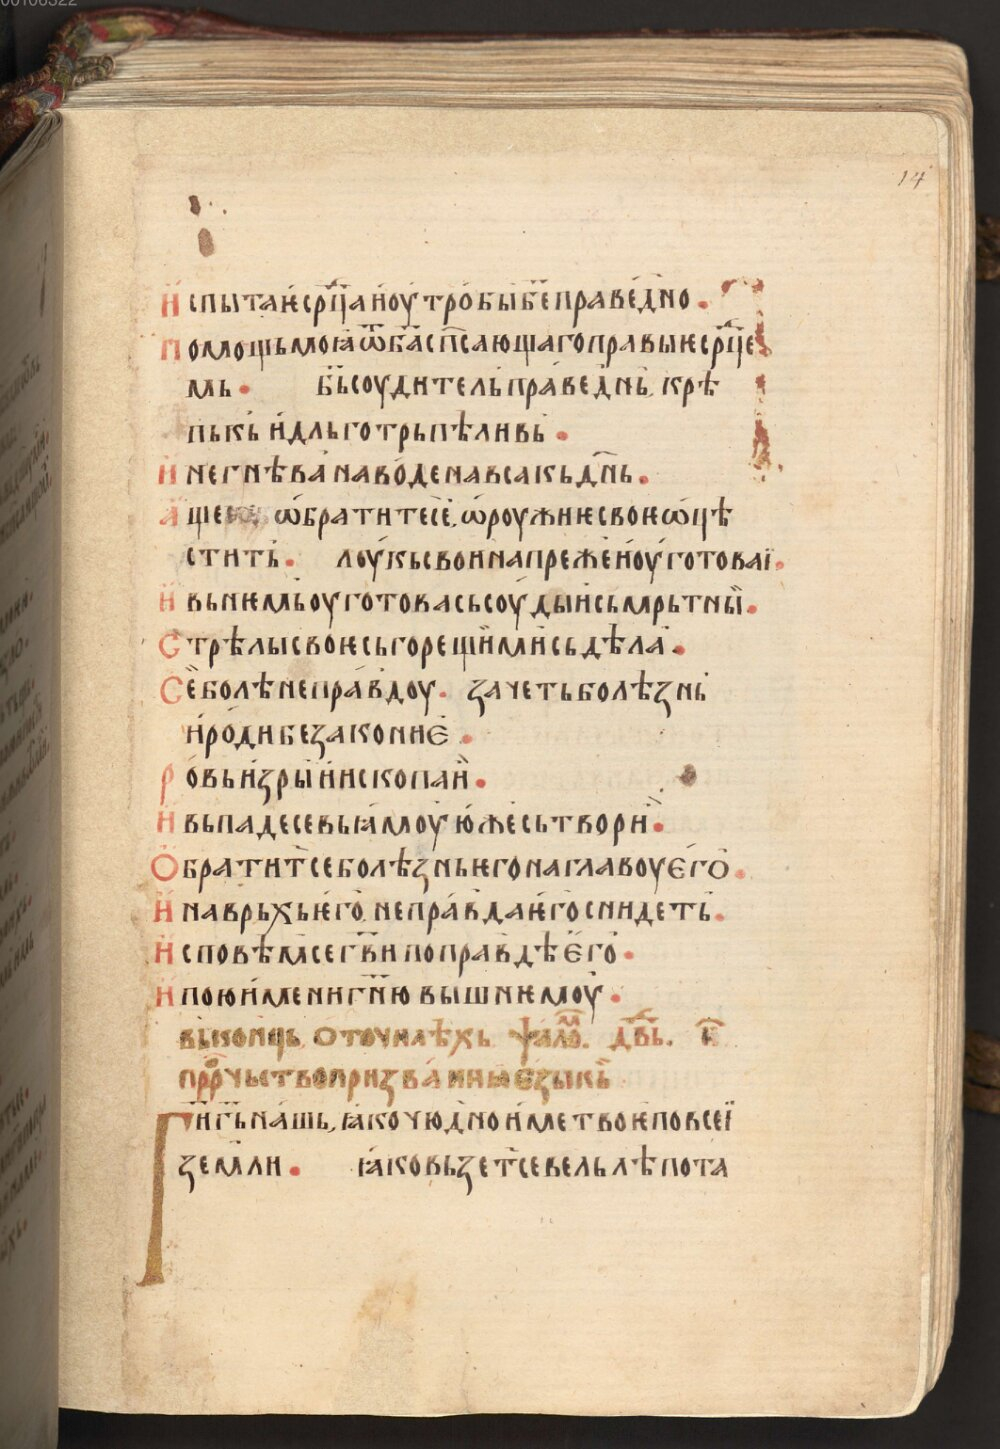 00106322
14
Испытаѥ ср҃ца и оутробы б҃е праведно.
Помощь моꙗ ѿ б҃а сп҃сающаго правыѥ ср҃це
мь. б҃ь соудитель праведнь. крѣ
пькь и дльготрьпѣливь.
И не гнѣва наводе на всакь дн҃ь.
Аще ѡбратите се. ѡроужиѥ своѥ ѡцѣ
стить. лоукь свои напреже и оуготоваі.
И вь нѥмь оуготова сьсоуды сьмрьтныи.
Стрѣлы своѥ сьгорещиими сьдѣла.
Се болѣ неправдоу. зачеть болѣзнь
и роди безакониѥ.
Ровь изры и ископаи.
И вьпадесе вь ꙗмоу юже сьтвори.
Обратит се болѣзнь ѥго на главоу ѥго.
И на врьхь ѥго неправда ѥго снидеть.
Исповѣмсе гв҃и по правдѣ ѥго.
И пою имени гн҃ю вышнѥмоу.
вь коньць о точилѣхь ѱалмо. дв҃дь. н҃
прр҃чьство призвания ѥзыкь
Г҃и г҃ь нашь, ꙗко чюдно име твоѥ по всеї
земли. ꙗко вьзет се вельлѣпота